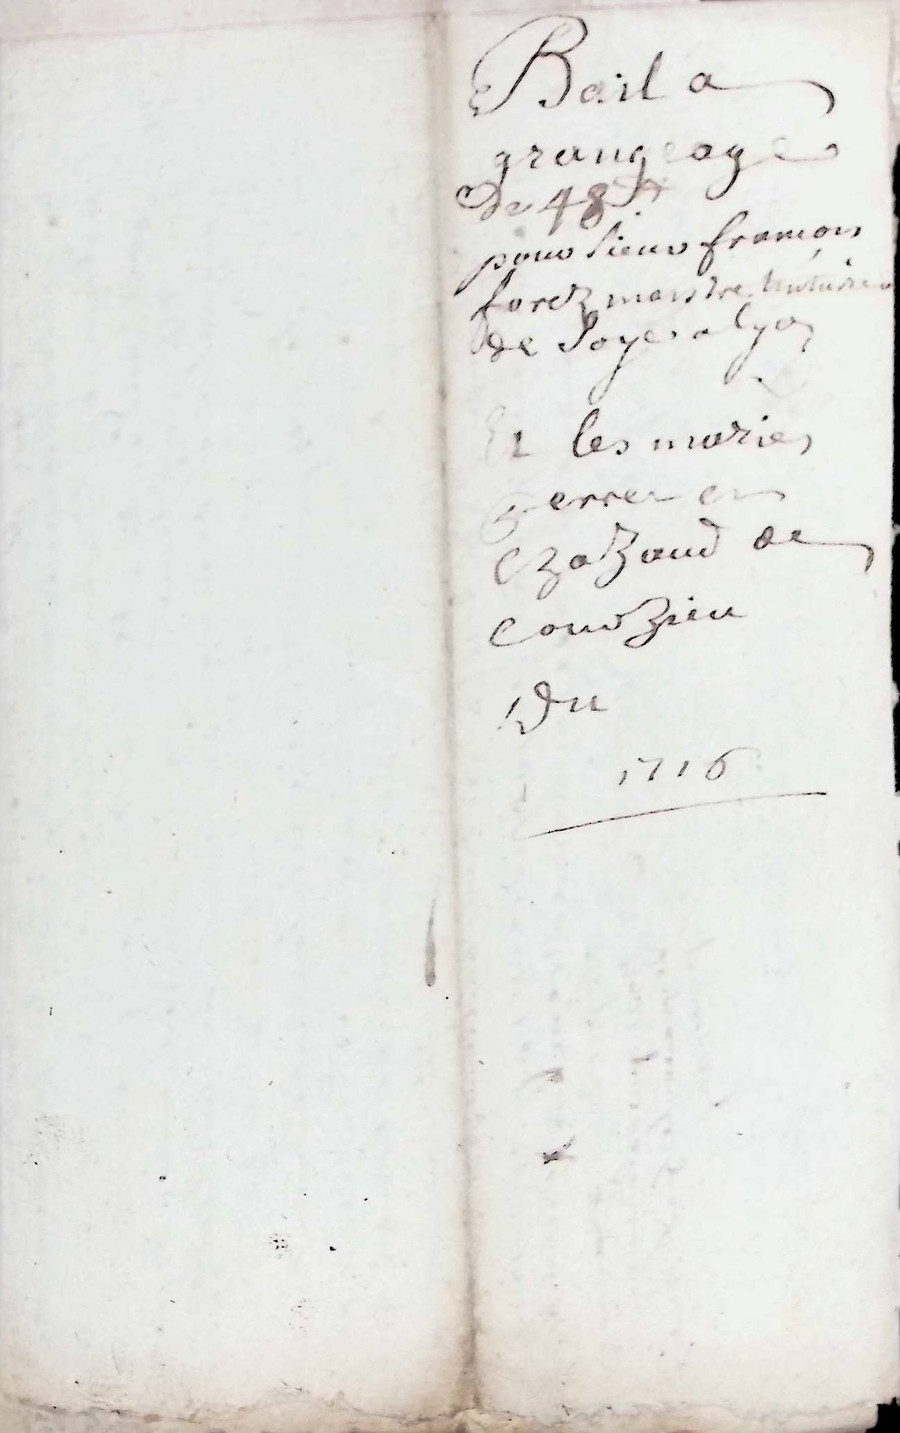 Bail a
grangeage
de 48 #
pour sieur francois
forez maistre
de Soye a Lyon
Et les maries
Perret et
Chazaud de
Courzieu
Du
1716